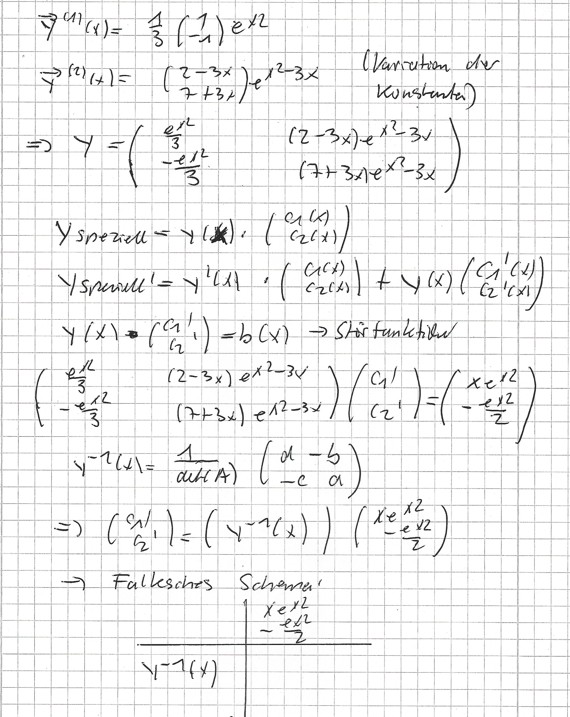 y⃗⁽¹⁾(x) = 1/3 (1 / -1) e^x2
y⃗⁽²⁾(x) = (2-3x / 7+3x) e^x²-3x (Variation der Konstanten)
=> Y = (e^x²/3 (2-3x)e^x²-3x / -e^x²/3 (7+3x)e^x²-3x)
Y speziell = y(x) · (C1(x) / C2(x))
Y speziell' = y'(x) · (C1(x) / C2(x)) + y(x) (C1'(x) / C2'(x))
y(x) · (C1' / C2') = b(x) → Störfunktion
(e^x²/3 (2-3x) e^x²-3x / -e^x²/3 (7+3x) e^x²-3x) (C1' / C2') = (x e^x2 / -e^x2/2)
y^-1(x) = 1/det(A) (d -b / -c a)
=> (C1' / C2') = (y^-1(x)) (x e^x2 / -e^x2/2)
→ Falksches Schema:
x e^x2
- e^x2/2
y^-1(x)